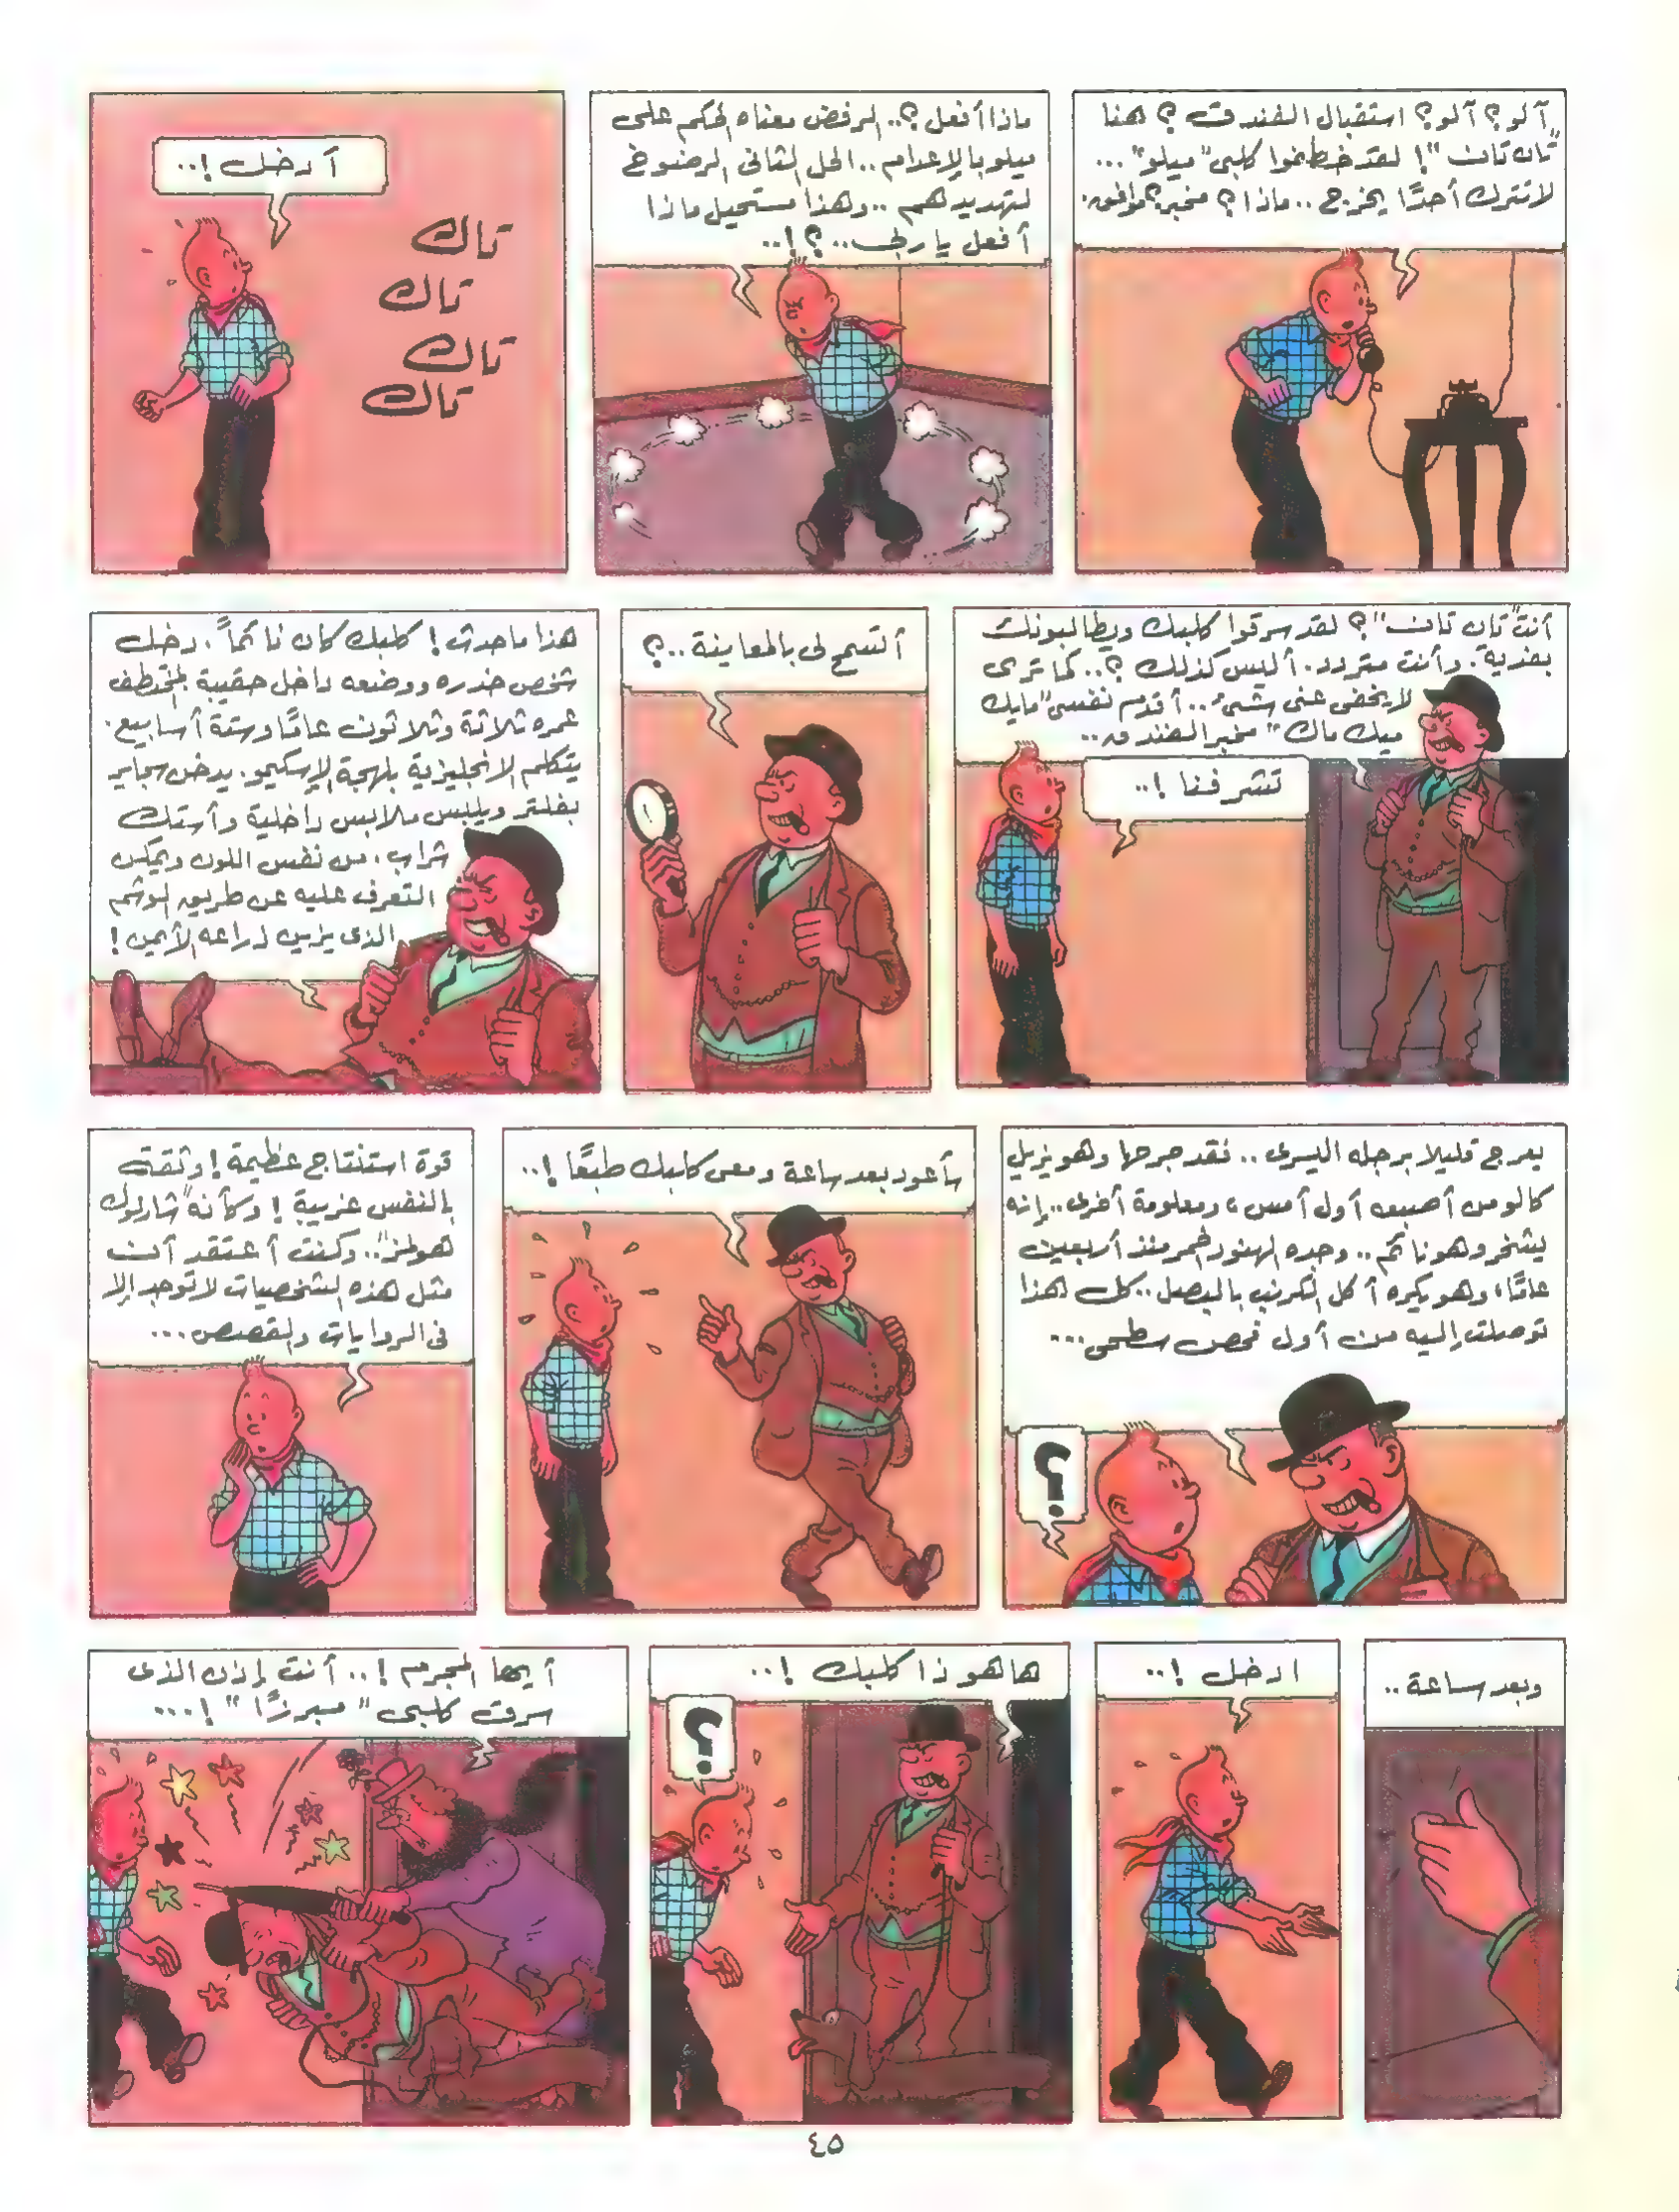 آلو؟ آلو؟ استقبال الفندق؟ هنا
"تان تان"! لقد خطفوا كلبى "ميلو"...
لا تترك أحدًا يخرج.. ماذا؟ مخبر؟ موافق.
ماذا أفعل؟.. الرفض معناه الحكم على
ميلو بالإعدام.. الحل الثانى الرضوخ
لتهديدهم.. وهذا مستحيل ماذا
أفعل يا ربى..؟!..
أدخل!..
تاك
تاك
تاك
تاك
أنت "تان تان"؟ لقد سرقوا كلبك ويطالبونك
بفدية. وأنت متردد. أليس كذلك؟.. كما ترى
لا يخفى عنى شىء.. أقدم نفسى "مايك
ميك ماك" مخبر الفندق..
تشرفنا!..
أتسمح لى بالمعاينة..؟
هذا ما حدث! كلبك كان نائمًا. دخل
شخص خدره ووضعه داخل حقيبة المختطف
عمره ثلاثة وثلاثون عامًا وستة أسابيع.
يتكلم الانجليزية بلهجة الإسكيمو. يدخن سجاير
بفلتر ويلبس ملابس داخلية وأستك
شراب، من نفس اللون ويمكن
التعرف عليه عن طريق الوشم
الذى يزين ذراعه الأيمن!
يعرج قليلا برجله اليسرى.. فقد جرحها وهو يزيل
كالو من أصبعه أول أمس، ومعلومة أخرى.. إنه
يشخر وهو نائم.. وجده الهنود الحمر منذ أربعين
عامًا، وهو يكره أكل الكرنب بالبصل.. كل هذا
توصلت إليه من أول فحص سطحى...
؟
سأعود بعد ساعة ومعى كلبك طبعًا!..
قوة استنتاج عظيمة! وثقة
بالنفس غريبة! وكأنه "شارلوك
هولمز".. وكنت أعتقد أن
مثل هذه الشخصيات لا توجد إلا
فى الروايات والقصص...
وبعد ساعة..
ادخل!..
ها هو ذا كلبك!..
؟
أيها المجرم!.. أنت إذن الذى
سرقت كلبى "ميرزا"!...
٤٥